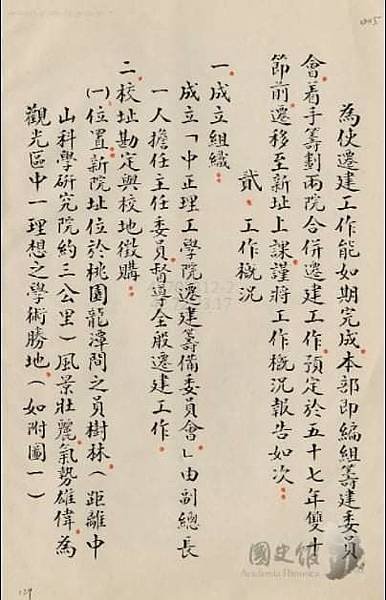 為使遷建工作能如期完成本部即編組籌建委員
會着手籌劃兩院合併遷建工作預定於五十七年雙十
節前遷移至新址上課謹將工作概況報告如次：
貳、工作概況
一、成立組織：
成立「中正理工學院遷建籌備委員會」由副總長
一人擔任主任委員督導全般遷建工作。
二、校址勘定與校地徵購：
(一)位置：新院址位於桃園龍潭間之員樹林（距離中
山科學研究院約三公里）風景壯麗氣勢雄偉為
觀光區中一理想之學術勝地（如附圖一）
國史館
Academia Historica
129